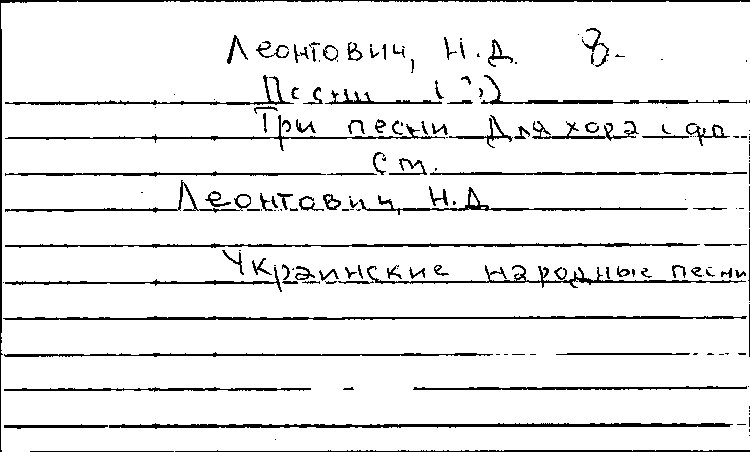 Леонтович, Н.Д. 8.
Песни (3)
Три песни для хора с фп
см.
Леонтович, Н.Д.
Украинские народные песни